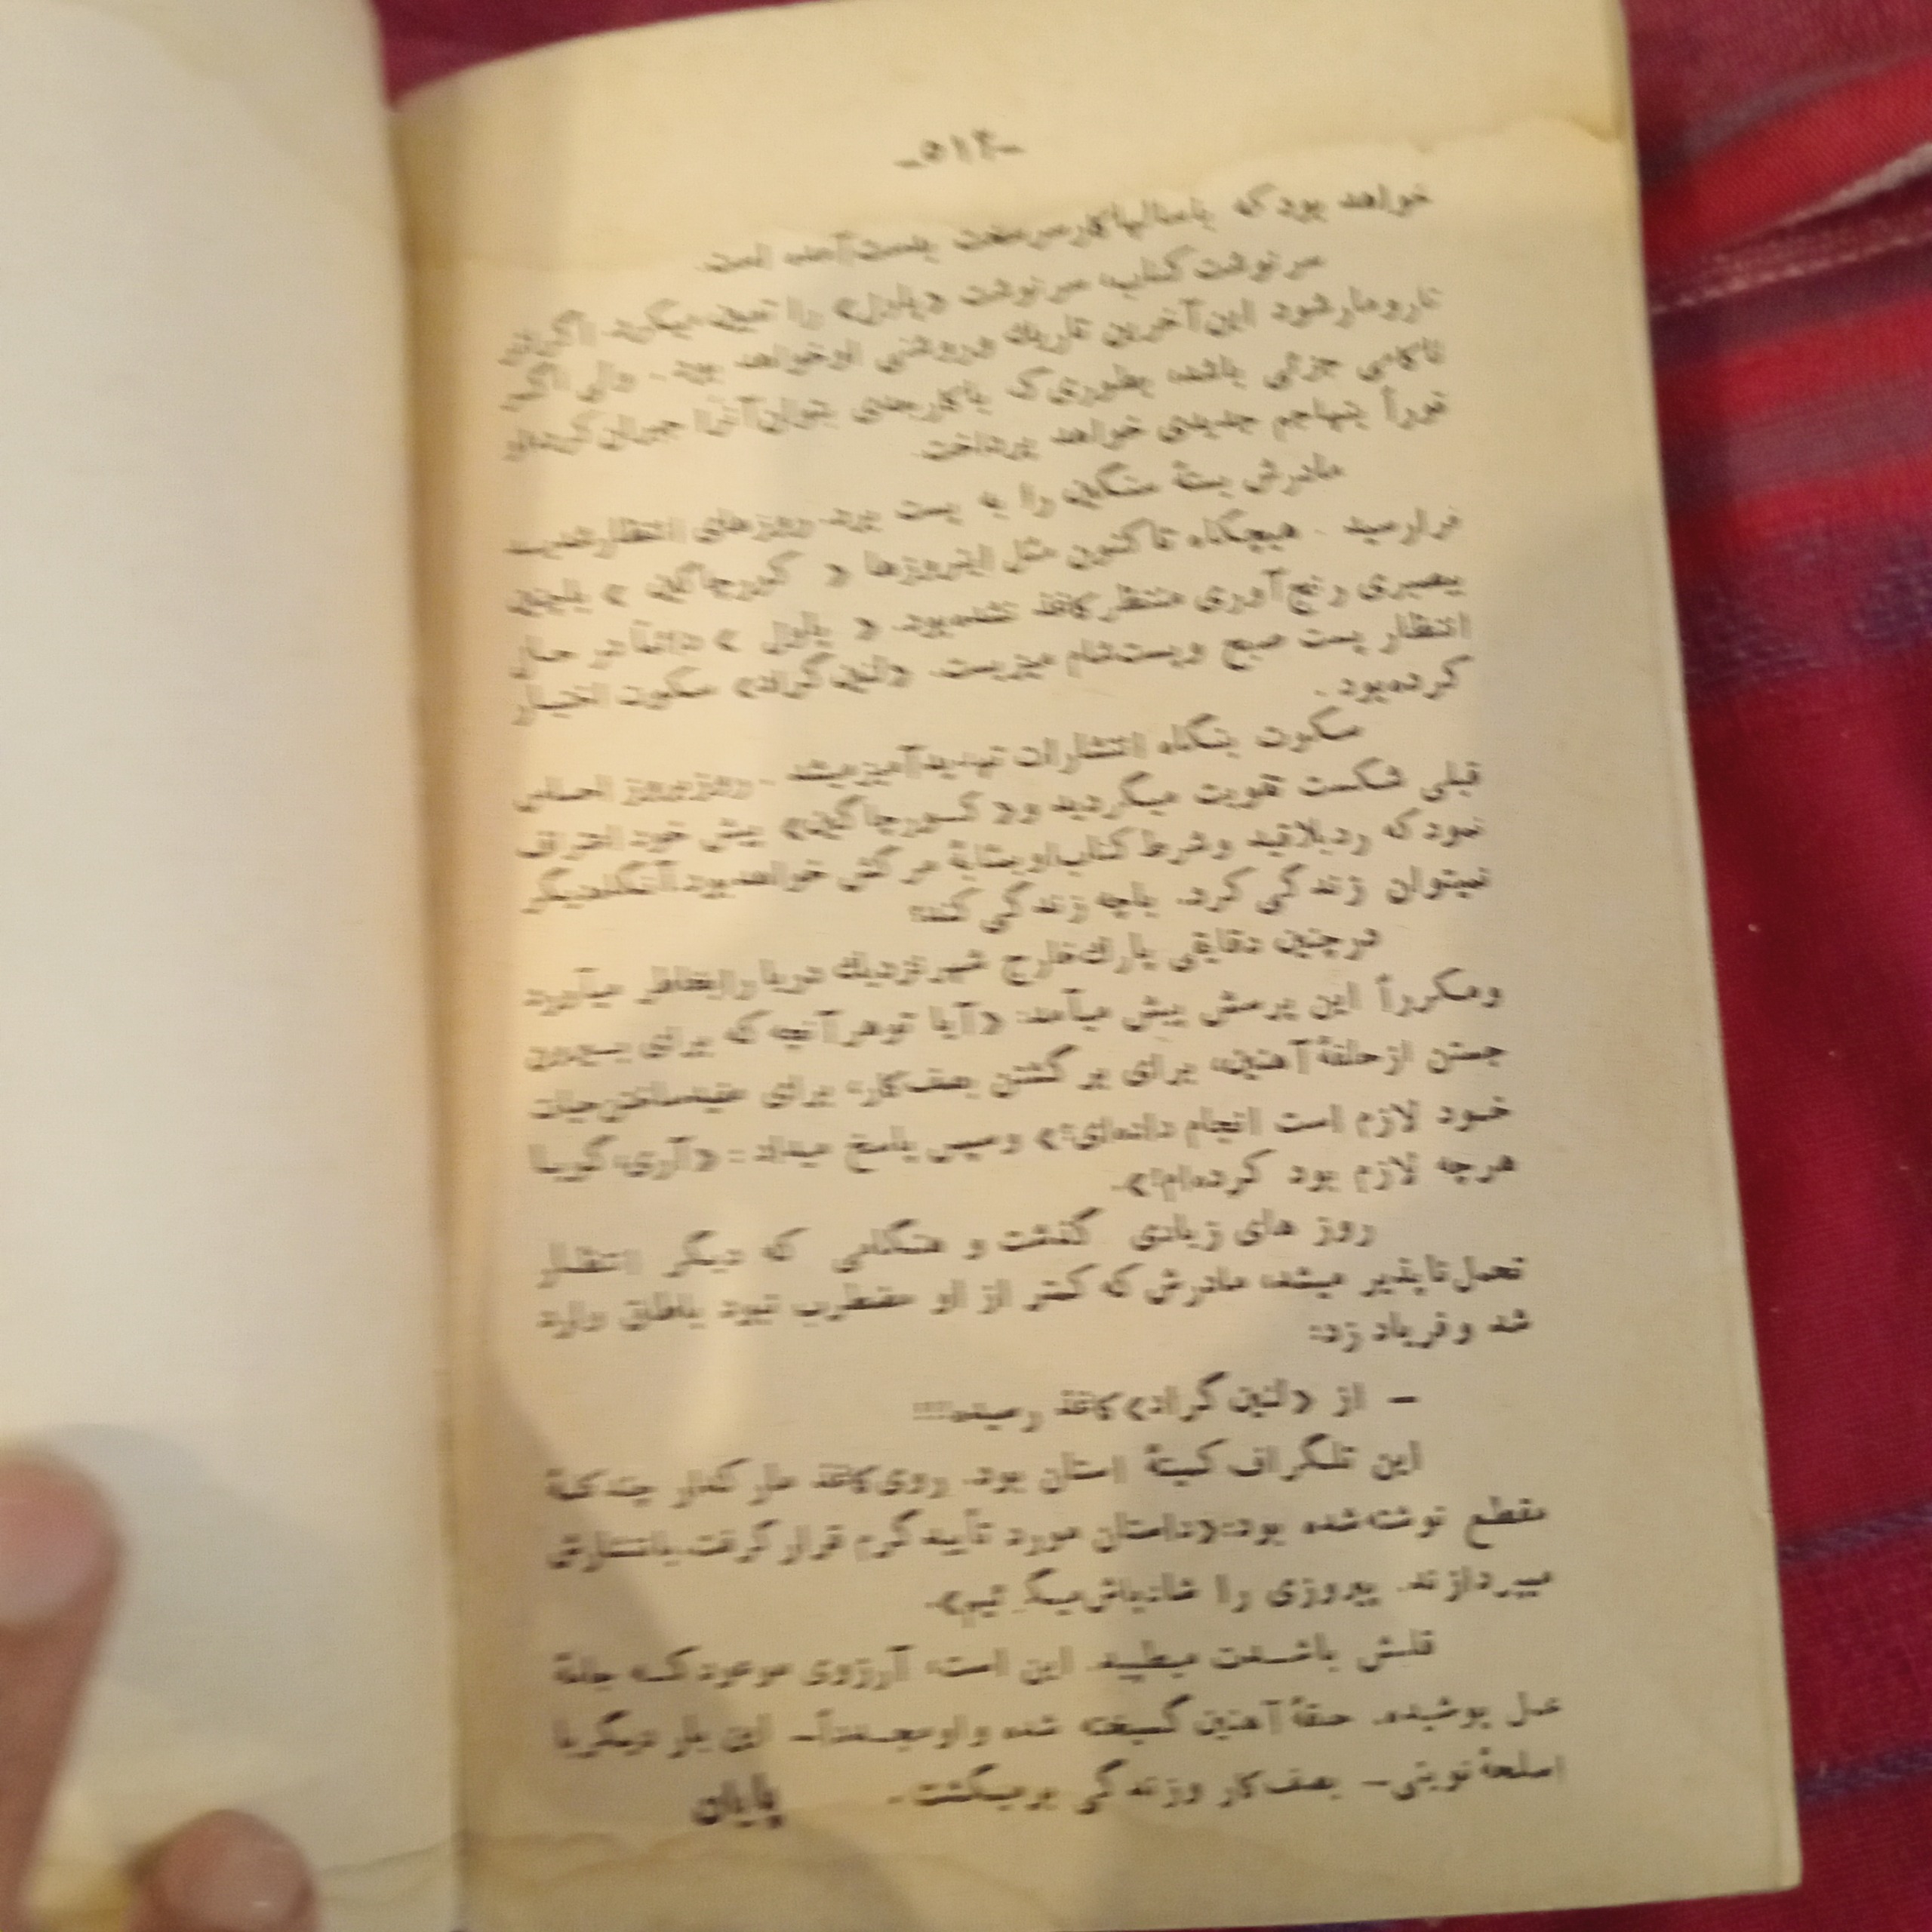 -۵۱۴-
خواهد بود که باسالها کار سرسخت بدست آمده است.
سرنوشت کتاب، سرنوشت «پاول» را تعیین میکرد. اگر
تارومار شود این آخرین تاریك و روشنی او خواهد بود - ولی اگر
ناکامی جزئی باشد، بطوری که با کار بعدی بتوان آنرا جبران کرد او
فوراً بتهاجم جدیدی خواهد پرداخت.
مادرش بستهٔ سنگین را به پست برد. روزهای انتظار شدید
فرارسید. هیچگاه تا کنون مثل اینروزها « کورچاگین » باچنین
بیصبری رنج آوری منتظر کاغذ نشده بود. « پاول » دائماً در حال
انتظار پست صبح و پست شام میزیست. «لنین گراد» سکوت اختیار
کرده بود.
سکوت بنگاه انتشارات تهدید آمیز میشد - روز بروز احساس
قبلی شکست تقویت میگردید و « کورچاگین» پیش خود اعتراف
نمود که رد بلاقید و شرط کتاب او بمثابهٔ مرگش خواهد بود. آنگاه دیگر
نمیتوان زندگی کرد. باچه زندگی کند؟
در چنین دقایقی پارك خارج شهر نزدیك دریا را بخاطر میآورد
و مکرراً این پرسش پیش میآمد: «آیا تو هر آنچه که برای بیرون
جستن از حلقهٔ آهنین، برای برگشتن بصف کار، برای مفید ساختن حیات
خود لازم است انجام داده‌ای؟» و سپس پاسخ میداد : «آری، گویا
هرچه لازم بود کرده‌ام!».
روز های زیادی گذشت و هنگامی که دیگر انتظار
تحمل ناپذیر میشد، مادرش که کمتر از او مضطرب نبود باطاق وارد
شد و فریاد زد:
- از «لنین گراد» کاغذ رسیده!!!
این تلگراف کمیتهٔ استان بود. روی کاغذ مارکدار چند کلمهٔ
مقطع نوشته شده بود: «داستان مورد تأیید گرم قرار گرفت. بانتشارش
میپردازند. پیروزی را شادباش میگوئیم».
قلبش باشدت میطپید. این است، آرزوی موعود که جامهٔ
عمل پوشیده. حلقهٔ آهنین گسیخته شده و او مجدداً- این بار دیگر با
اسلحهٔ نوینی- بصف کار و زندگی برمیگشت.
پایان